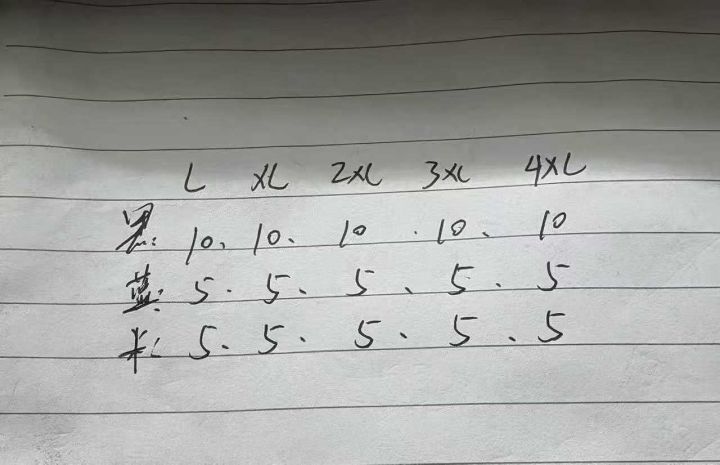 L XL 2XL 3XL 4XL
黑: 10、10、10、10、10
蓝: 5、5、5、5、5
米: 5、5、5、5、5